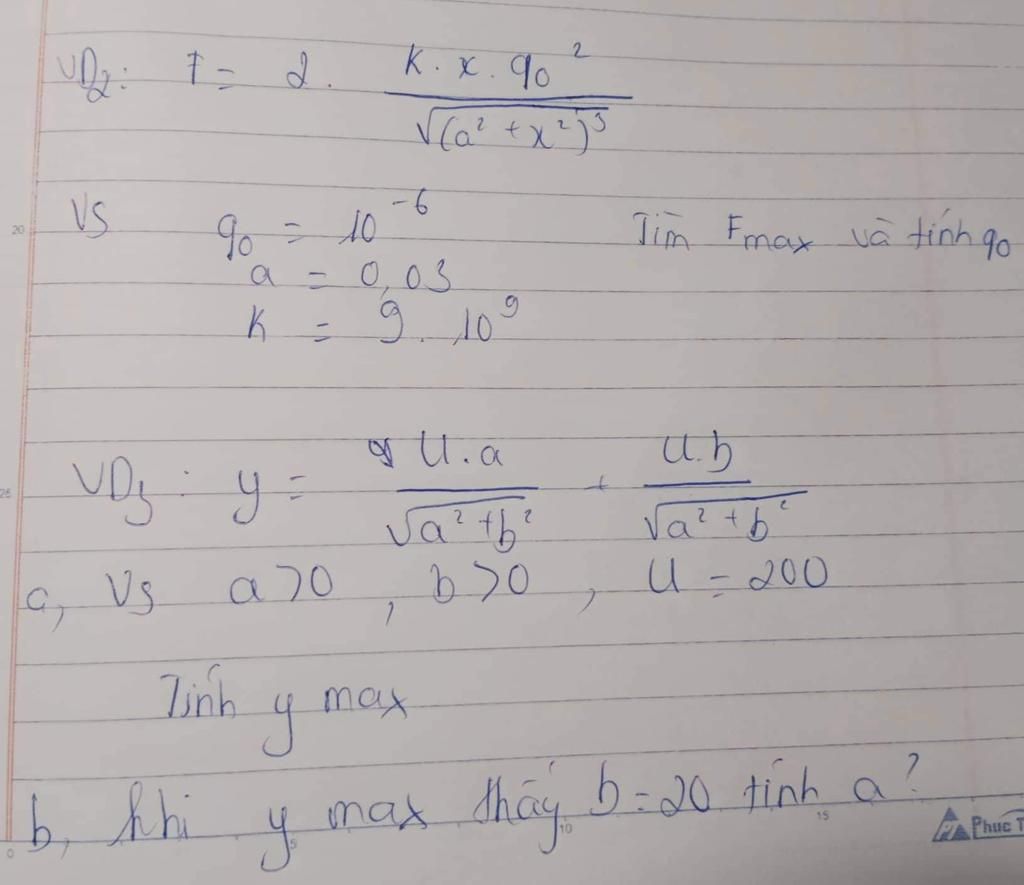 VD2: F = 2. K.x.q0² / √(a² + x²)³
20
VS q0 = 10⁻⁶ Tìm Fmax và tính q0
a = 0,03
K = 9.10⁹
25
VD3: y = U.a / √a² + b² + U.b / √a² + b²
a, VS a>0, b>0, U = 200
Tính y max
b, khi y max thấy b=20 tính a?
0 5 10 15
Phuc T